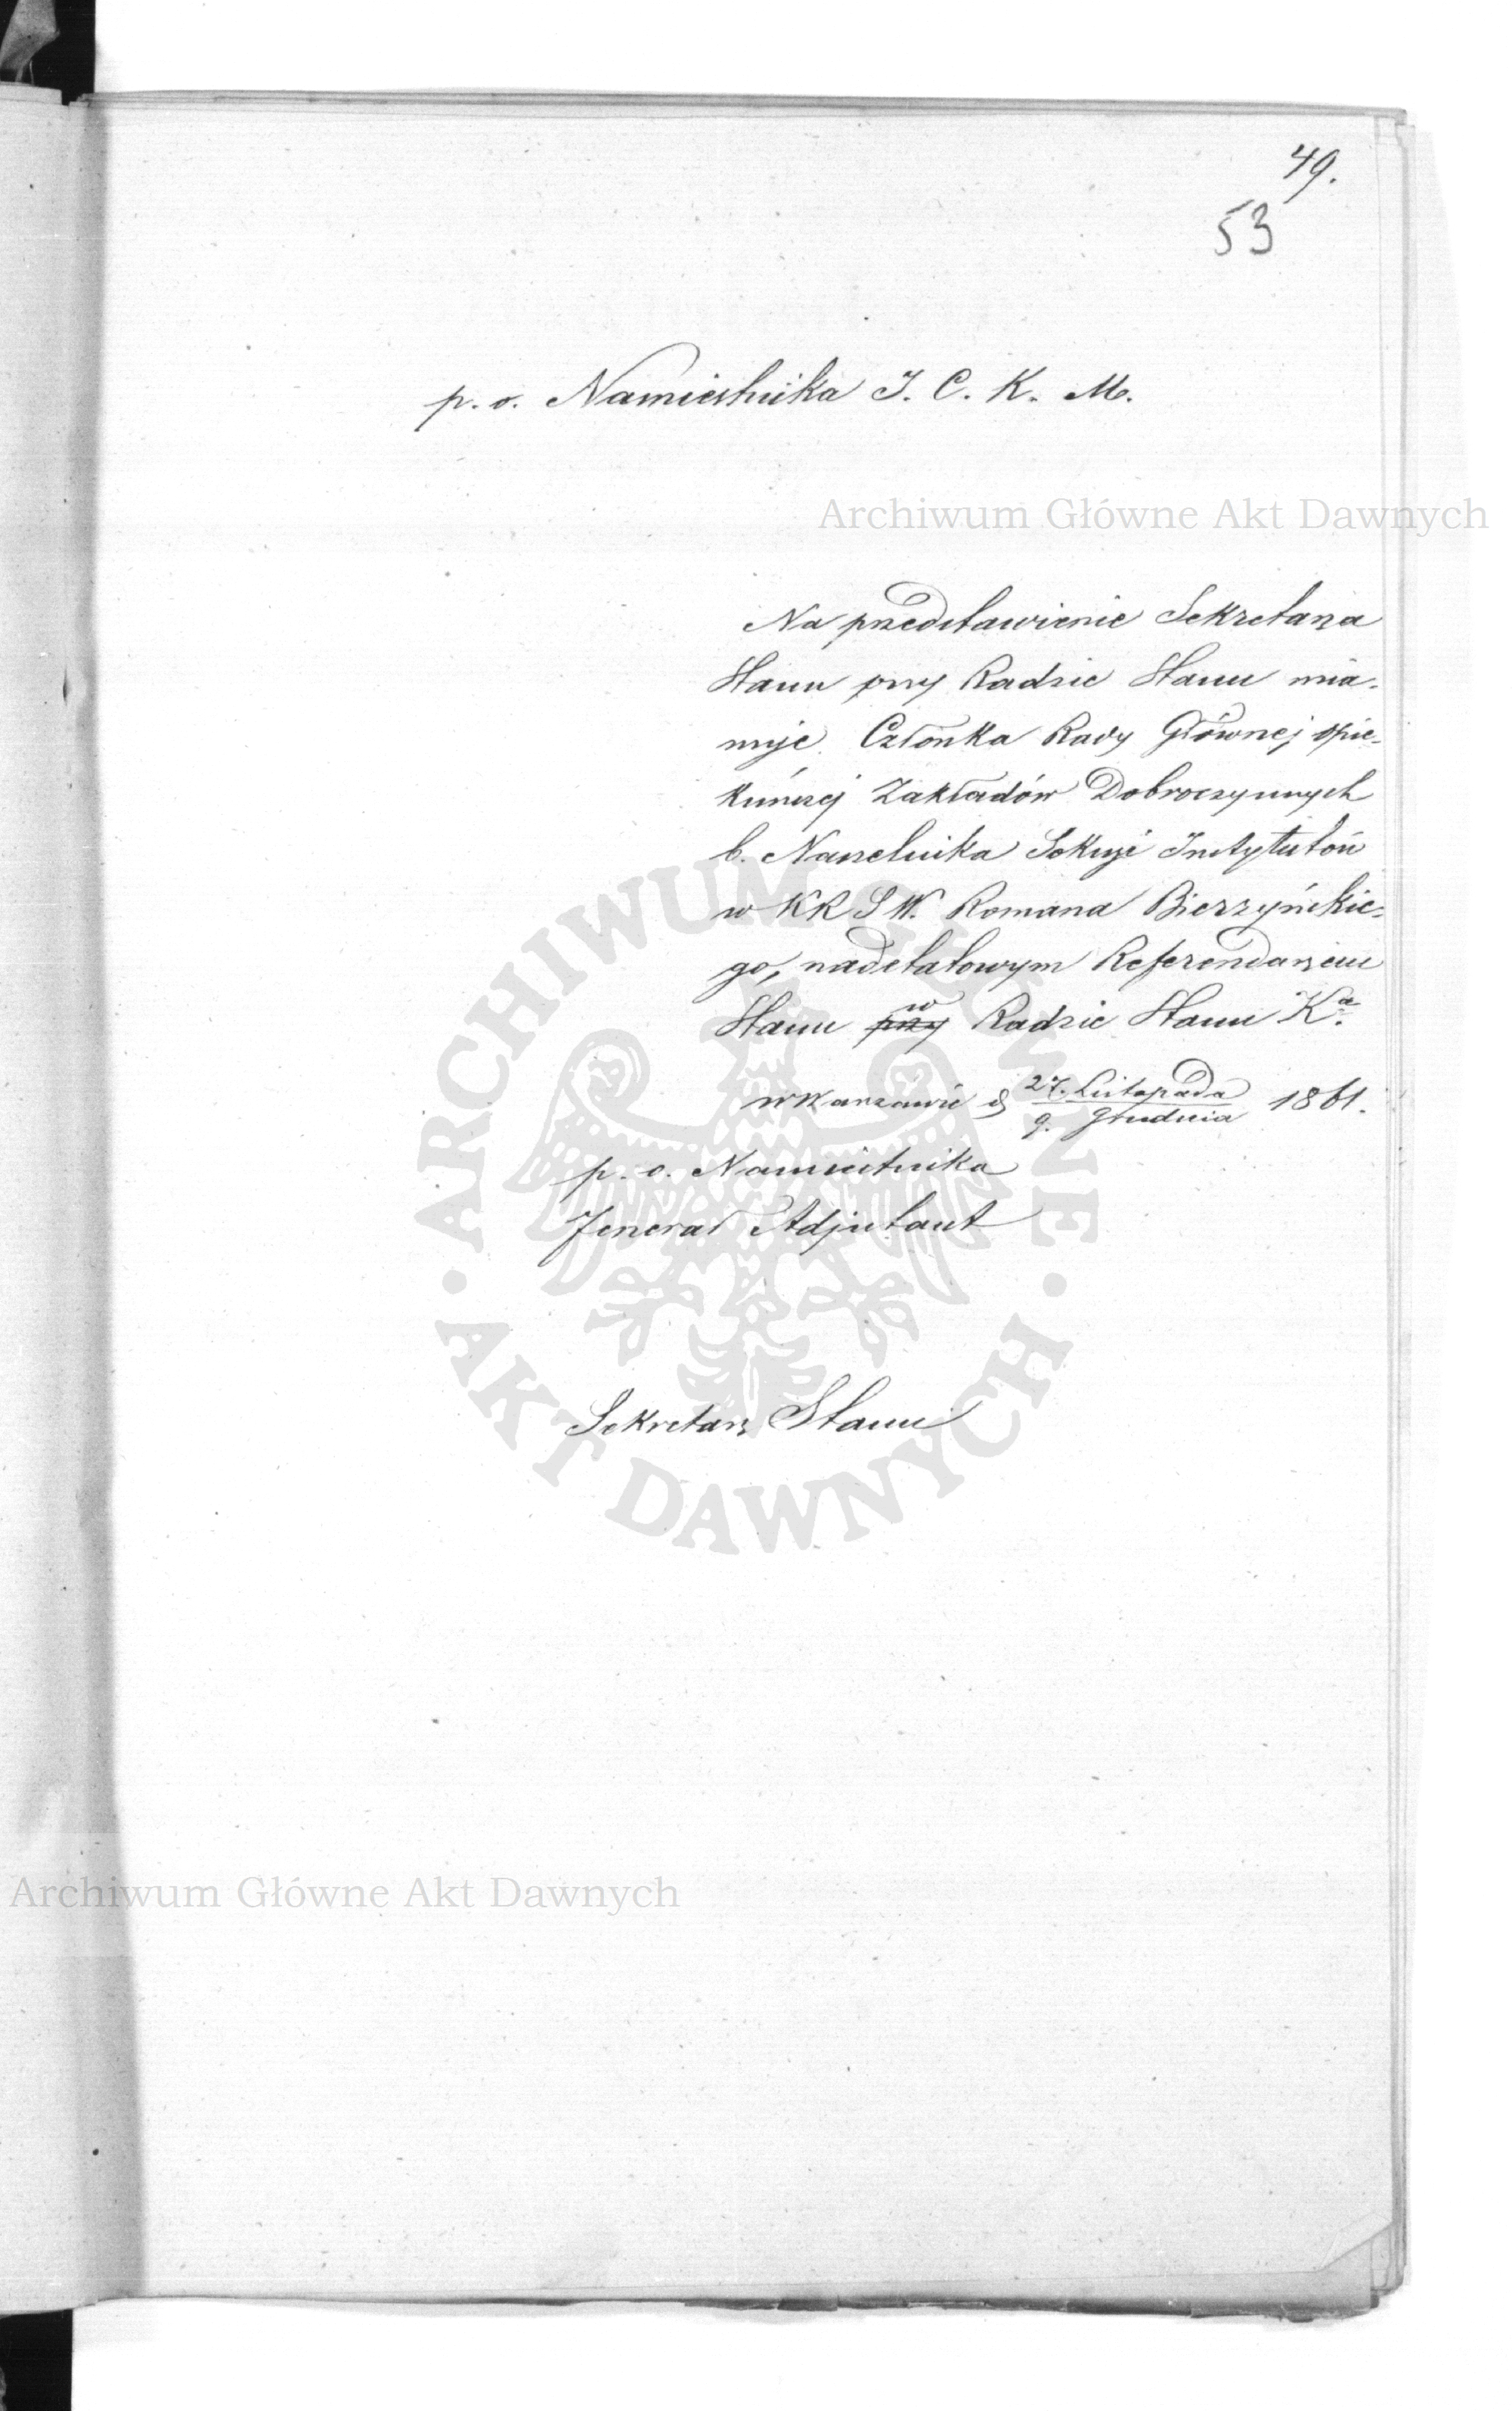 49.
53
p. o. Namiestnika J. C. K. M.
Archiwum Główne Akt Dawnych
Na przedstawienie Sekretarza
Stanu przy Radzie Stanu mia-
nuje Członka Rady Głównej opie-
kuńczej Zakładów Dobroczynnych
b. Naczelnika Sekcyi Instytutów
w KRSW. Romana Bierzyńskie-
go, nadetatowym Referendarzem
Stanu przy w Radzie Stanu Ka.
w Warszawie d 27. Listopada 1861.
9. Grudnia
p. o. Namiestnika
Jenerał Adjutant
Sekretarz Stanu
ARCHIWUM GŁÓWNE
AKT DAWNYCH
Archiwum Główne Akt Dawnych